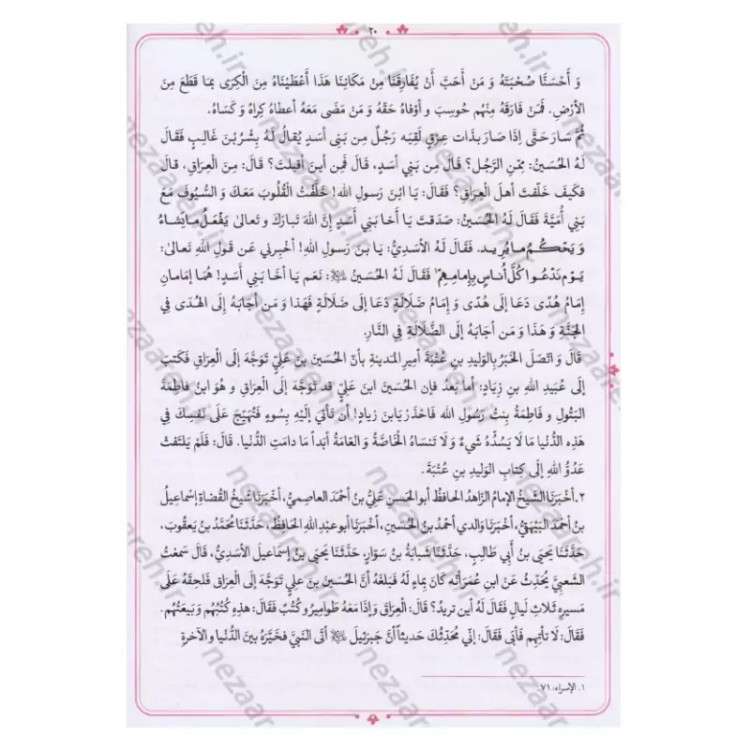 ٢٠
وَ أَحْسَنَّا صُحْبَتَهُ وَ مَنْ أَحَبَّ أَنْ يُفَارِقَنَا مِنْ مَكَانِنَا هَذَا أَعْطَيْنَاهُ مِنَ الْكِرَى بِمَا قَطَعَ مِنَ
الأَرْضِ. فَمَنْ فَارَقَهُ مِنْهُم حُوسِبَ وَ أوْفاهُ حَقَّهُ وَ مَنْ مَضَى مَعَهُ أعطاهُ كِراهُ وَ كَسَاهُ.
ثُمَّ سَارَ حَتَّى إذا صَارَ بِذَات عِرْقٍ لَقِيَه رَجُلٌ مِن بَنِي أسَدٍ يُقالُ لَهُ بِشْرُ بْنُ غَالِبٍ فَقَالَ
لَهُ الحُسَيْنُ: مِمّنِ الرَّجُل؟ قالَ مِن بَنِي أسَدٍ، قالَ فَمِن أينَ أقبلتَ؟ قَالَ: مِنَ العِرَاقِ. قالَ
فَكيفَ خَلّفتَ أهلَ العِرَاقِ؟ فَقَالَ: يَا ابْنَ رَسولِ الله! خَلَّفْتُ الْقُلُوبَ مَعَكَ وَ السُّيُوفَ مَعَ
بَنِي أُمَيَّةَ فَقَالَ لَهُ الحُسَيْنُ: صَدَقتَ يَا أخا بَنِي أسَدٍ إنَّ اللهَ تَبَارَكَ وَ تعالى يَفْعَلُ مَا يَشَاءُ
وَ يَحْكُمُ مَا يُرِيد. فَقَالَ لَهُ الأسَدِيُّ: يا بنَ رَسولِ اللهِ! أخبِرني عَن قَولِ اللهِ تَعالى:
يَوْمَ نَدْعُوا كُلَّ أُنَاسٍ بِإِمَامِهِمْ ١ فَقَالَ لَهُ الحُسَيْنُ: نَعَم يَا أخَا بَنِي أسَدٍ! هُمَا إمَامانِ
إمَامُ هُدًى دَعَا إلَى هُدًى وَ إمَامُ ضَلَالَةٍ دَعَا إلَى ضَلَالَةٍ فَهَذا وَ مَن أجَابَهُ إلَى الهُدَى فِي
الجَنَّةِ وَ هَذَا وَ مَن أجَابَهُ إلَى الضَّلَالَةِ فِي النَّارِ.
قَالَ وَ اتَّصَلَ الخَبَرُ بِالوَلِيدِ بنِ عُتْبَةَ أمِيرِ المَدينةِ بِأنَّ الحُسَيْنَ بنَ عَلِيٍّ تَوَجَّهَ إلَى العِرَاقِ فَكَتَبَ
إلَى عُبَيدِ اللهِ بنِ زِيَادٍ: أما بَعدُ فإن الحُسَيْنَ ابنَ عَلِيٍّ قَد تَوَجَّهَ إلَى العِرَاقِ وَ هو ابنُ فَاطِمَةَ
البَتولِ وَ فَاطِمَةُ بِنتُ رَسُولِ الله فَاحْذَر يَا بنَ زيادٍ! أن تَأتِيَ إلَيْهِ بِسُوءٍ فَتُهَيِّجَ عَلَى نَفْسِكَ فِي
هَذِهِ الدُّنيا مَا لَا يَسُدُّهُ شَيءٌ وَ لَا تَنسَاهُ الخَاصَّةُ وَ العَامَّةُ أبَداً مَا دامَتِ الدُّنيا. قَالَ: فَلَمْ يَلتَفِتْ
عَدُوُّ اللهِ إلَى كِتابِ الوَلِيدِ بنِ عُتْبَةَ.
٢. أخْبَرَنَا الشّيخُ الإمامُ الزّاهدُ الحافظُ أبو الحسنِ عَلِيُّ بنُ أحْمَدَ العاصميُّ، أخْبَرَنَا شَيخُ القُضاةِ إسماعيلُ
بنُ أحمَدَ البَيْهَقِيُّ، أخْبَرَنَا وَالدي أحمدُ بنُ الحُسَينِ، أخْبَرَنا أبو عبدِ اللهِ الحَافِظُ، حَدَّثَنَا مُحَمَّدُ بنُ يَعقُوبَ،
حَدَّثَنَا يَحيَى بنُ أبِي طَالِبٍ، حَدَّثَنَا شَبابَةُ بنُ سَوّارٍ، حَدَّثَنَا يَحيَى بنُ إسماعيلَ الأسَدِيُّ، قَالَ سَمِعْتُ
الشَّعبِيَّ يُحَدِّثُ عَنْ ابنِ عُمَرَ أنَّه كَانَ بِماءٍ لَهُ فَبَلَغَهُ أنَّ الحُسَيْنَ بنَ عليٍّ تَوَجَّهَ إلَى العِرَاقِ فَلَحِقَهُ عَلَى
مَسيرةِ ثَلاثِ لَيالٍ فَقَالَ لَهُ أينَ تريدُ؟ قالَ: العِرَاقَ وَ إذَا مَعَهُ طَواميرُ وَ كُتُبٌ فَقَالَ: هذِهِ كُتُبُهُم وَ بَيعَتُهُم.
فَقَالَ: لَا تأتِهِم فأبَى فَقَالَ: إنّي مُحَدِّثُكَ حَدِيثاً أنَّ جَبرَئِيلَ أتَى النَّبِيَّ فَخَيَّرَهُ بينَ الدُّنْيا وَ الآخرةِ
١. الإسراء: ٧١.
nezaareh.ir